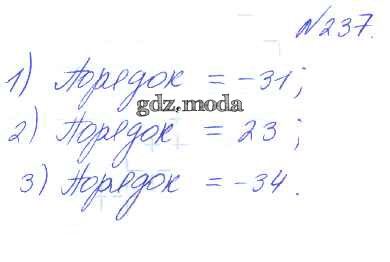 №237.
1) Порядок = -31;
gdz.moda
2) Порядок = 23;
3) Порядок = -34.